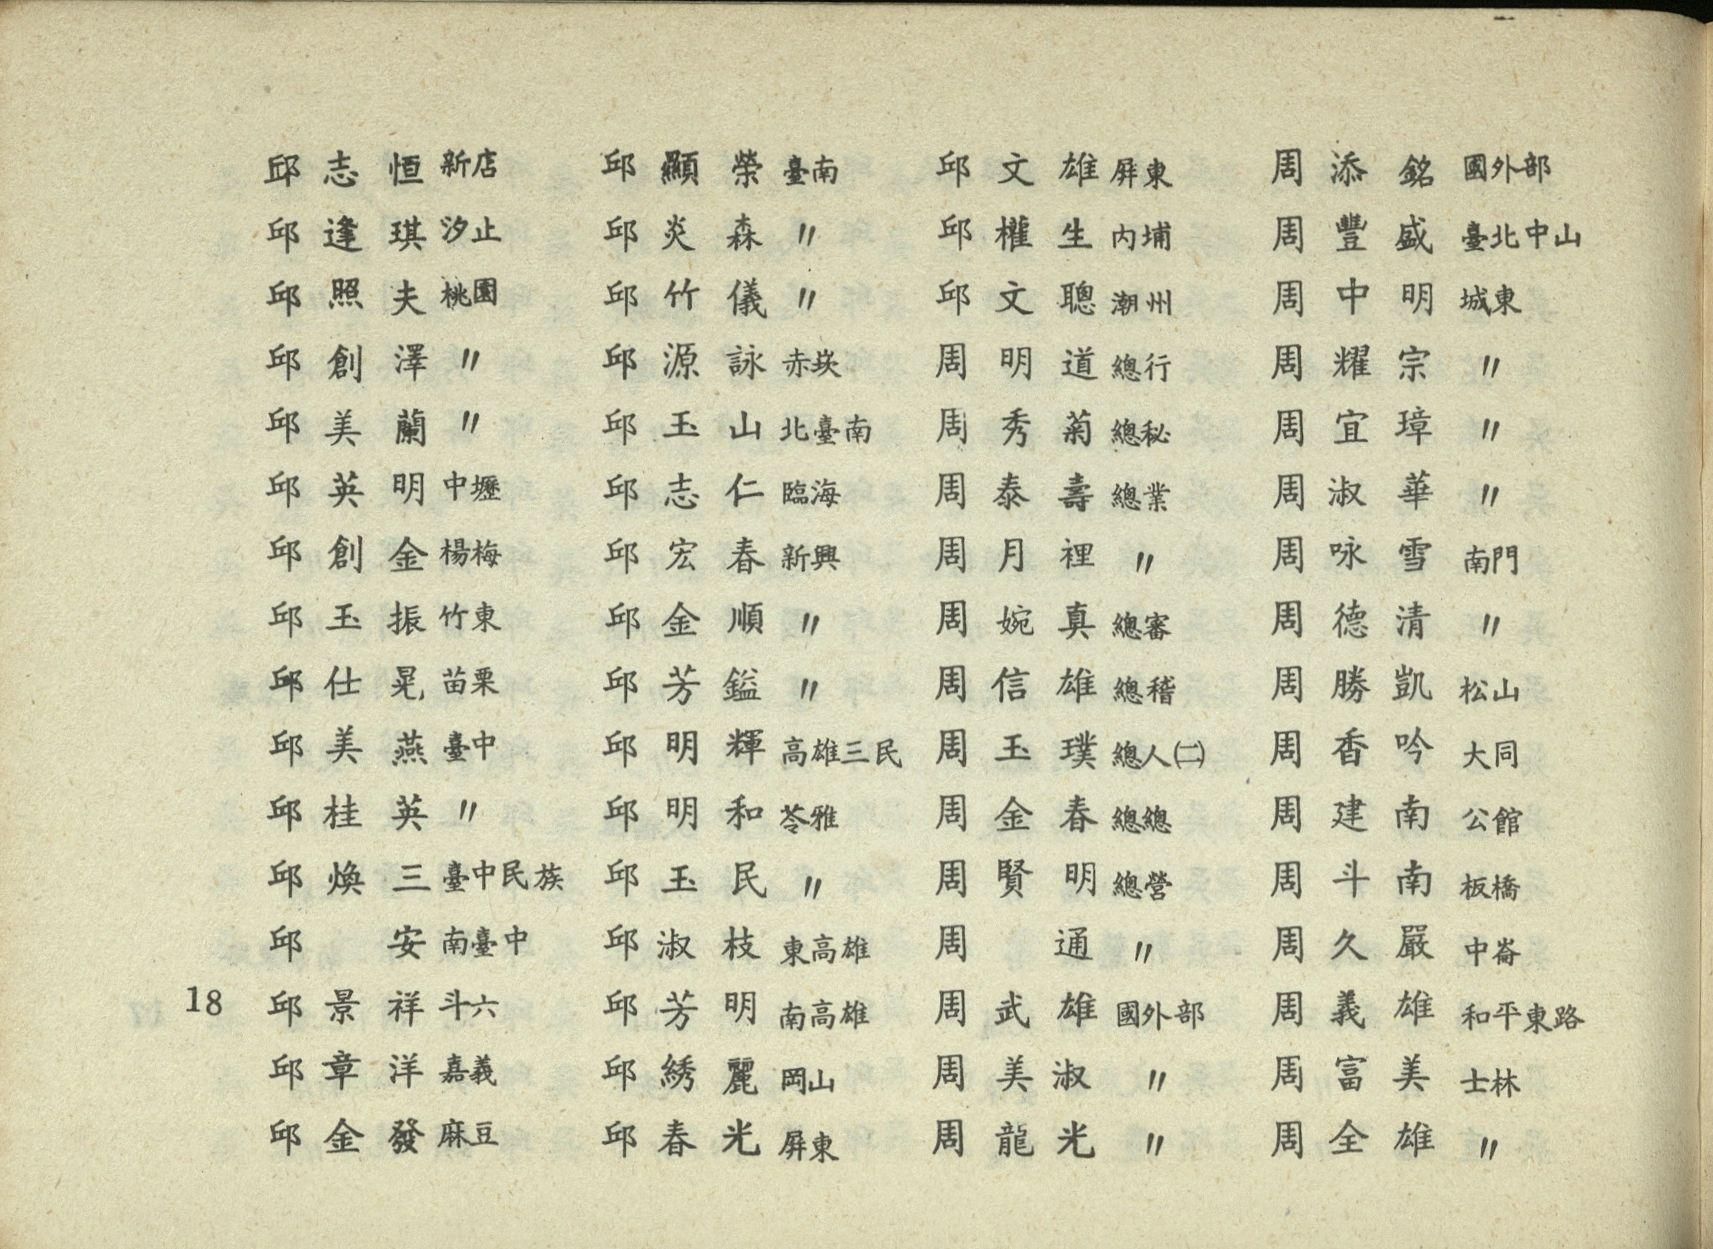 邱志恒 新店
邱逢琪 汐止
邱照夫 桃園
邱創澤 〃
邱美蘭 〃
邱英明 中壢
邱創金 楊梅
邱玉振 竹東
邱仕晃 苗栗
邱美燕 臺中
邱桂英 〃
邱煥三 臺中民族
邱 安 南臺中
邱景祥 斗六
邱章洋 嘉義
邱金發 麻豆
邱顯榮 臺南
邱炎森 〃
邱竹儀 〃
邱源詠 赤崁
邱玉山 北臺南
邱志仁 臨海
邱宏春 新興
邱金順 〃
邱芳鎰 〃
邱明輝 高雄三民
邱明和 苓雅
邱玉民 〃
邱淑枝 東高雄
邱芳明 南高雄
邱綉麗 岡山
邱春光 屏東
邱文雄 屏東
邱權生 內埔
邱文聰 潮州
周明道 總行
周秀菊 總秘
周泰壽 總業
周月裡 〃
周婉真 總審
周信雄 總稽
周玉璞 總人㈡
周金春 總總
周賢明 總營
周 通 〃
周武雄 國外部
周美淑 〃
周龍光 〃
周添銘 國外部
周豐盛 臺北中山
周中明 城東
周耀宗 〃
周宜璋 〃
周淑華 〃
周咏雪 南門
周德清 〃
周勝凱 松山
周香吟 大同
周建南 公館
周斗南 板橋
周久嚴 中崙
周義雄 和平東路
周富美 士林
周全雄 〃
18